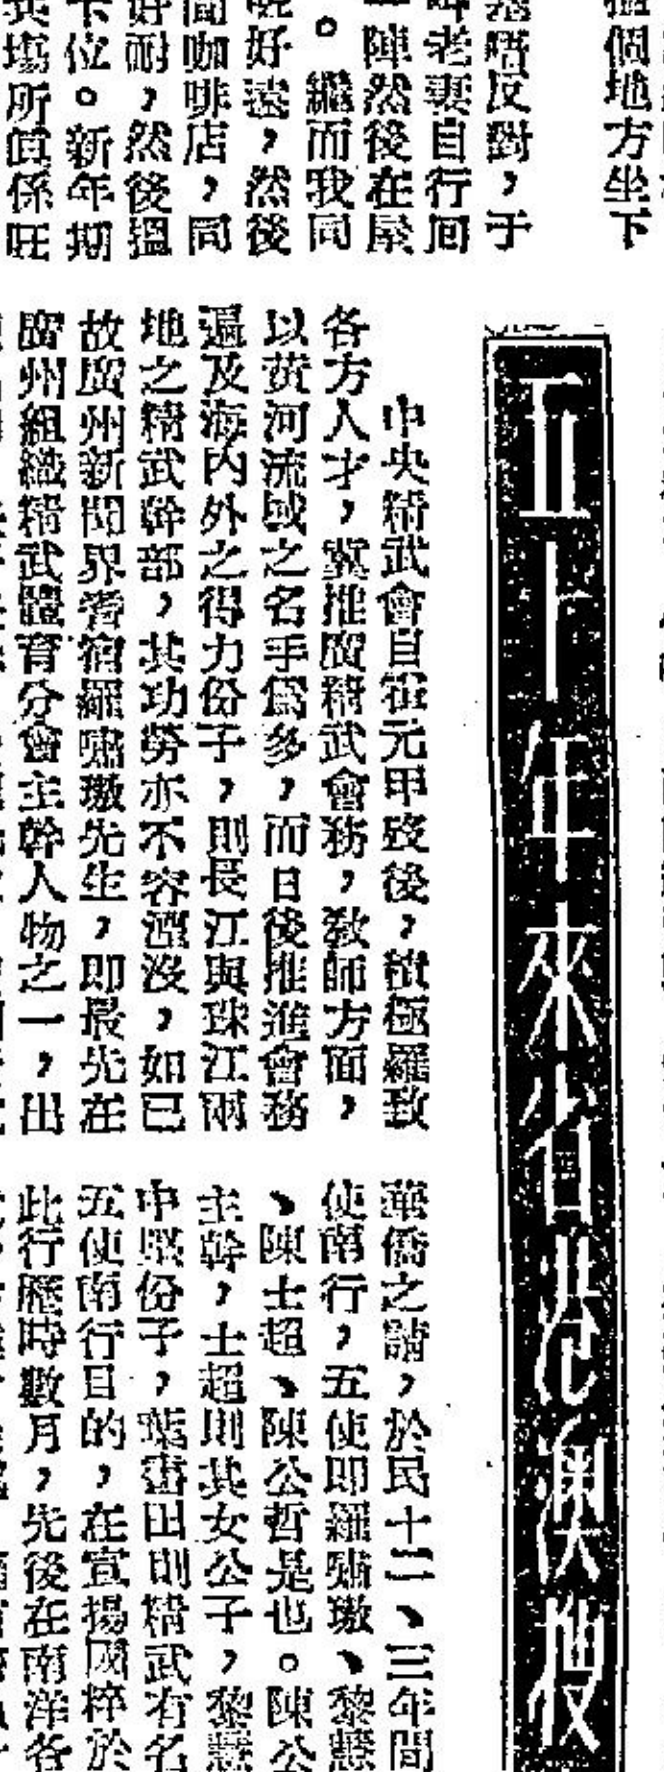 個地方坐下
反對，于
老妻自行回
陣然後在屋
。繼而我同
好遠，然後
間咖啡店，同
好耐，然後搵
卡位。新年期
塲所值係旺
五十年來省港澳技
中央精武會自霍元甲歿後，積極羅致
各方人才，冀推廣精武會務，敎師方面，
以黄河流域之名手爲多，而日後推進會務
遍及海內外之得力份子，則長江與珠江兩
地之精武幹部，其功勞亦不容湮沒，如已
故廣州新聞界耆宿羅嘯璈先生，即最先在
廣州組織精武體育分會主幹人物之一，出
華僑之請，於民十二、三年間
使南行，五使即羅嘯璈、黎慧
、陳士超、陳公哲是也。陳公
主幹，士超則其女公子，黎慧
中堅份子，葉書田則精武有名
五使南行目的，在宣揚國粹於
此行歷時數月，先後在南洋各